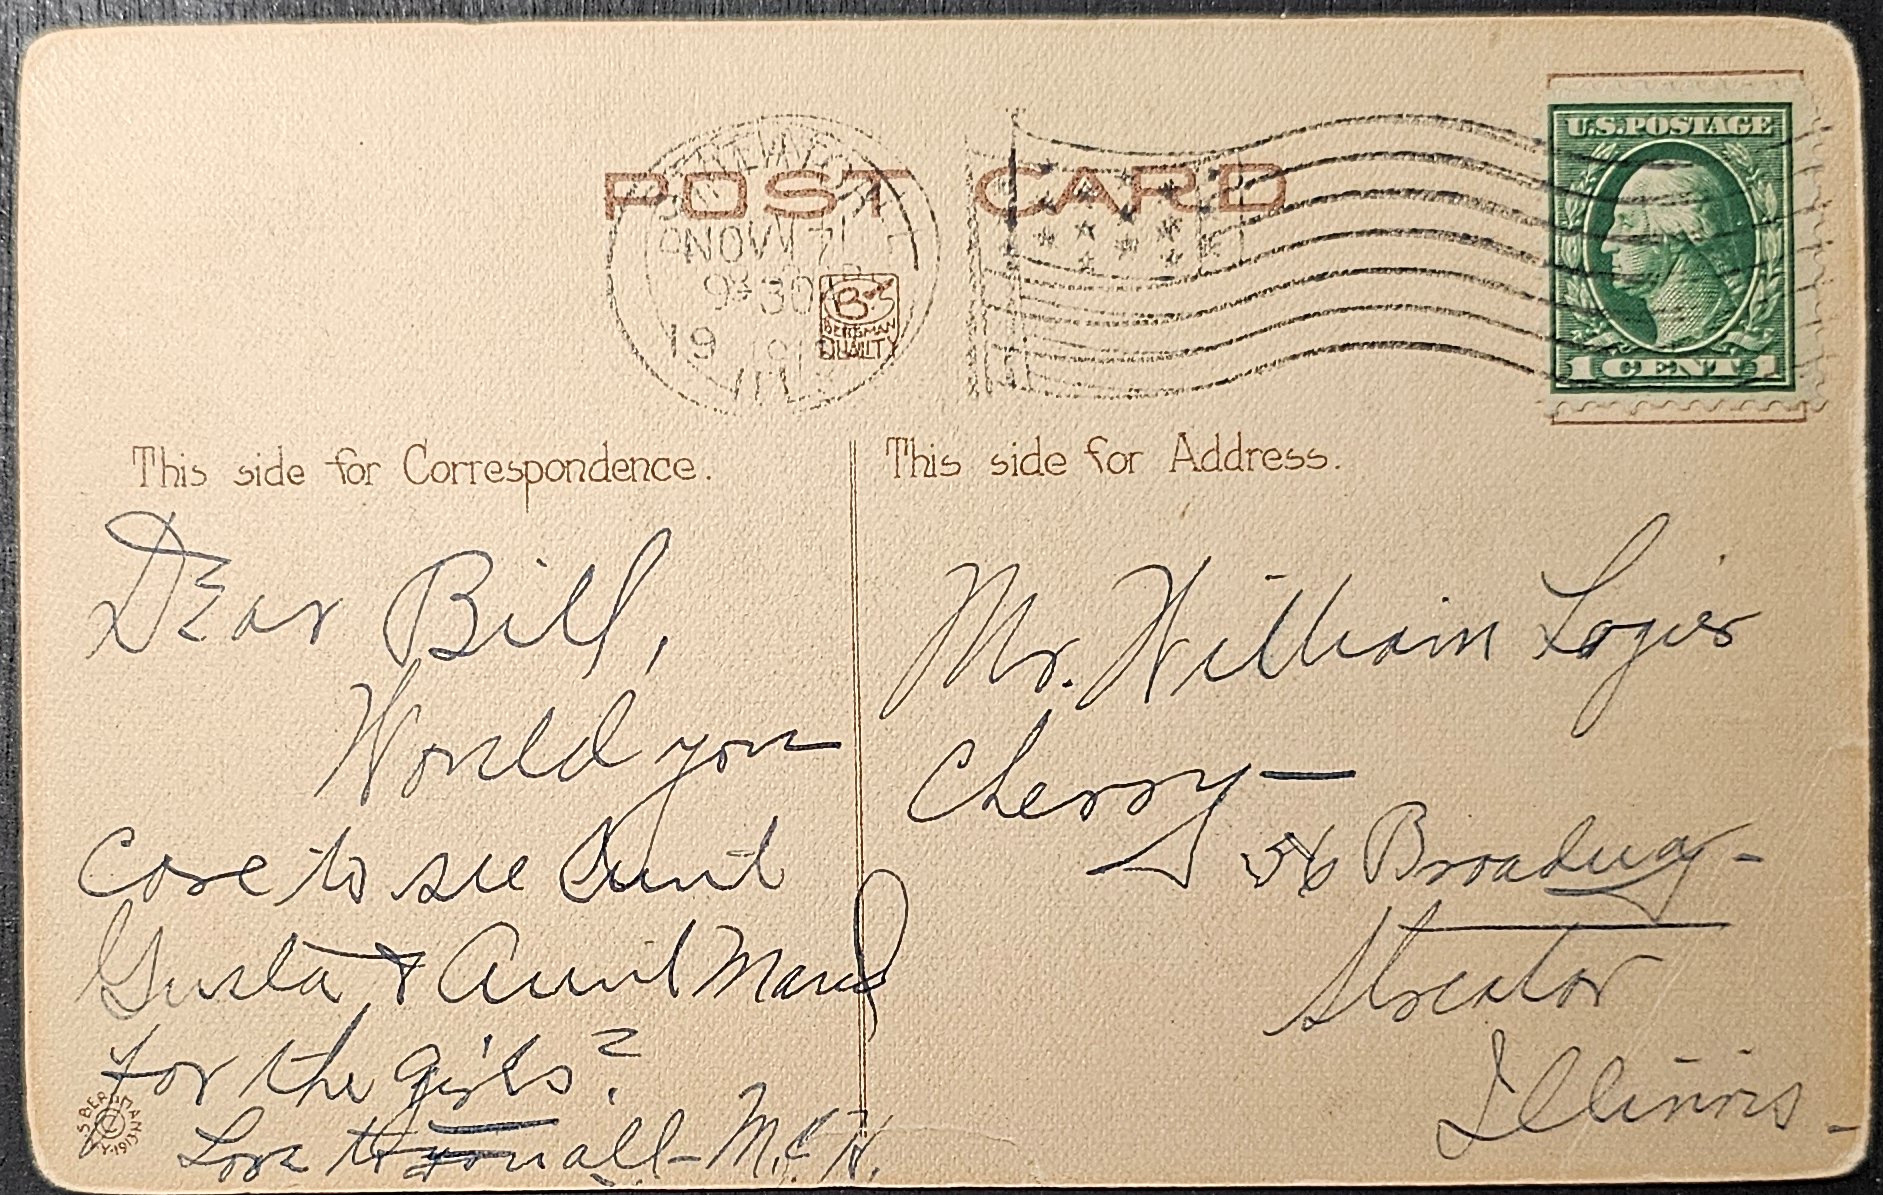 POST CARD
NOV 17
9 30
19
ILL
B S
BERGMAN
QUALITY
U.S. POSTAGE
1 CENT 1
This side for Correspondence.
Dear Bill,
Would you
care to see Aunt
Gusta & Aunt
for the girls?
Love to you all – M. & H.
S. BERGMAN N.Y. 1913
This side for Address.
Mr. William Logier
Cherry –
56 Broadway –
Streator
Illinois –